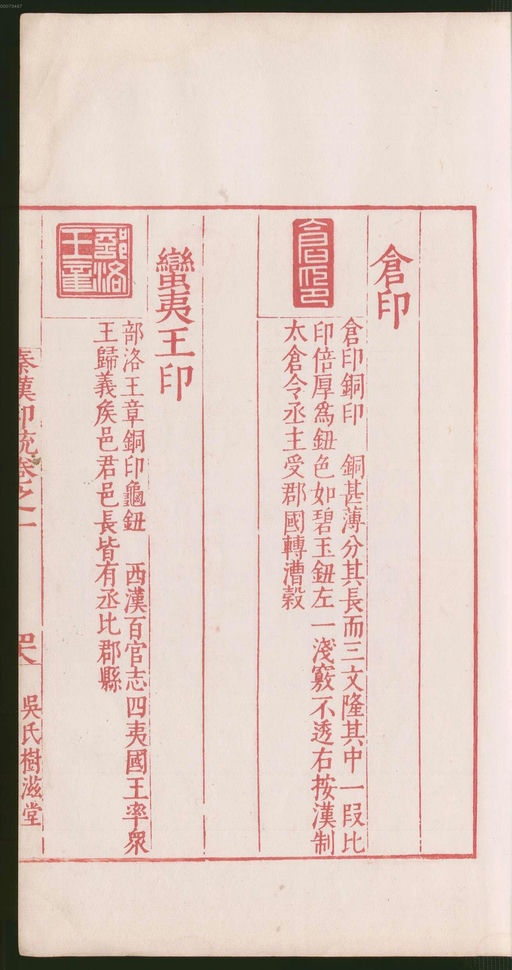 倉印
倉印
倉印銅印 銅甚薄分其長而三文隆其中一段比
印倍厚為鈕色如碧玉鈕左一淺竅不透右按漢制
太倉令丞主受郡國轉漕穀
蠻夷王印
部洛
王章
部洛王章銅印龜鈕 西漢百官志四夷國王率衆
王歸義矦邑君邑長皆有丞比郡縣
秦漢印統卷之一
吳氏樹滋堂
00073447